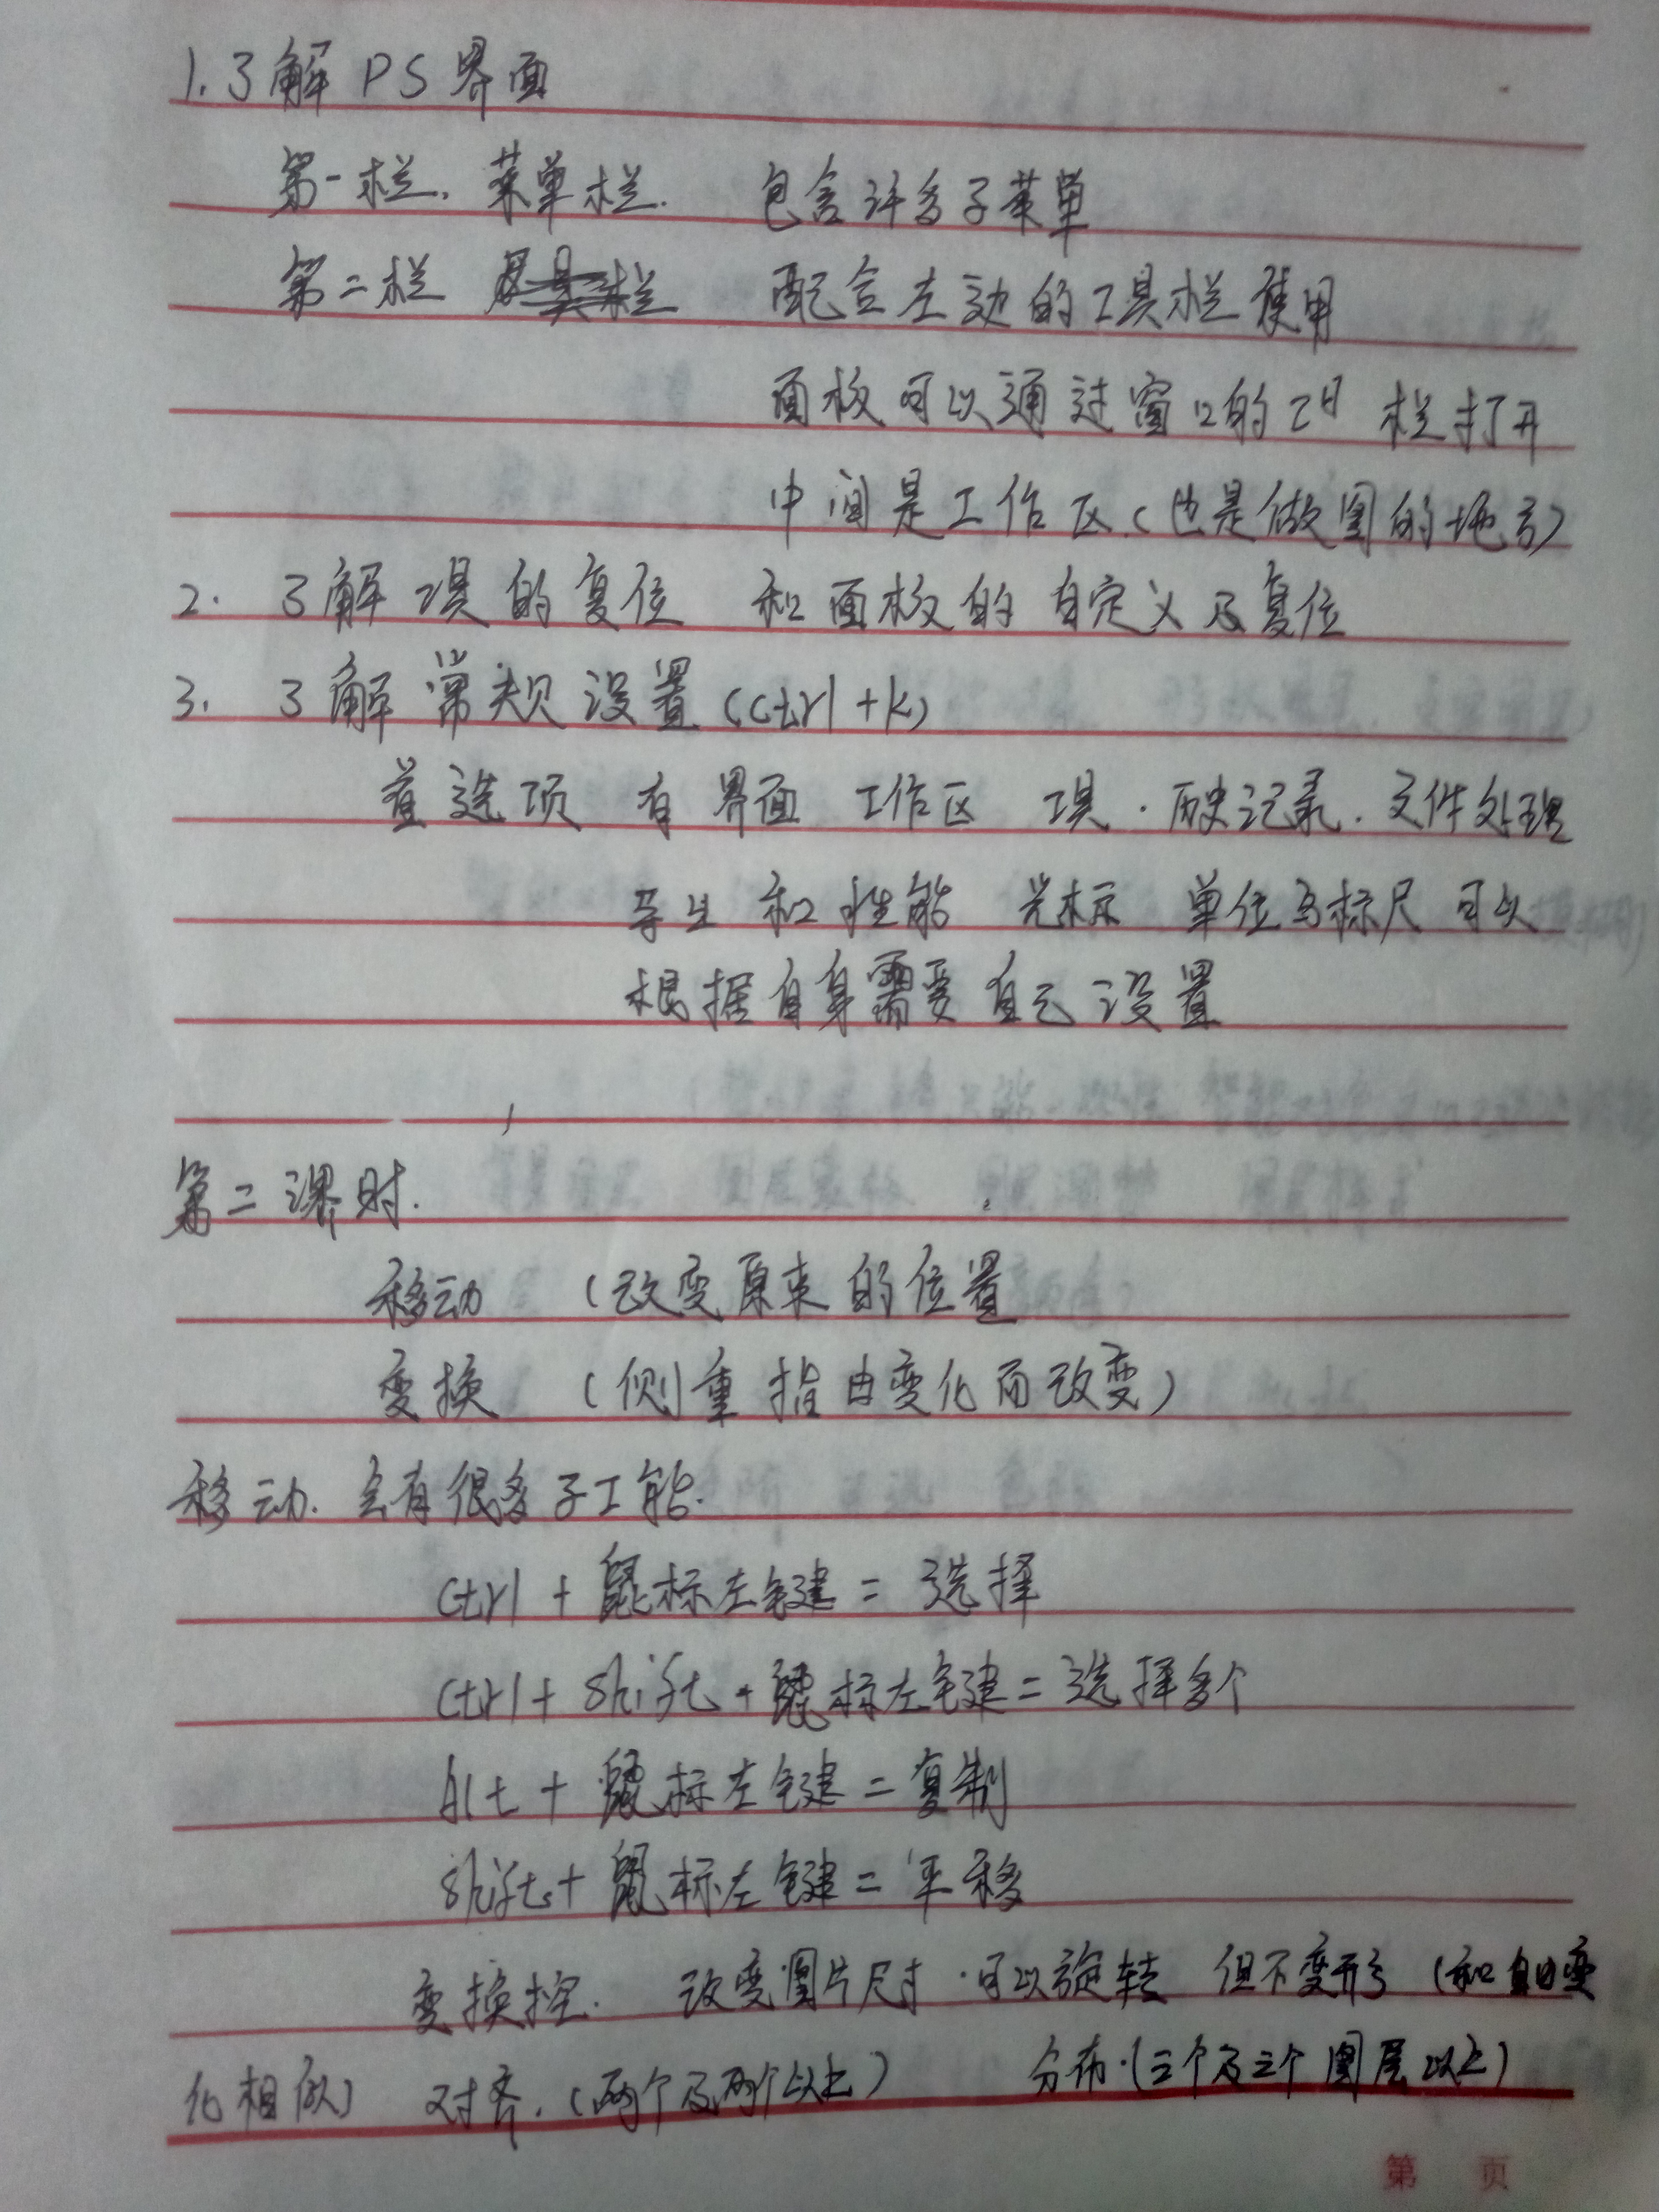 1.了解 PS界面
第一栏. 菜单栏. 包含许多子菜单
第二栏 配合左边的工具栏使用
面板可以通过窗口的 栏打开
中间是工作区(也是做图的地方)
2. 了解工具的复位 和面板的自定义及复位
3. 了解常规设置(ctrl+k)
首选项 有界面 工作区 工具.历史记录.文件处理
导出和性能 光标 单位与标尺 可以
根据自身需要自己设置
第二课时.
移动 (改变原来的位置
变换 (侧重指由变化而改变)
移动.会有很多子工能.
ctrl+鼠标左键=选择
ctrl+shift+鼠标左键=选择多个
Alt+鼠标左键=复制
shift+鼠标左键=平移
变换控. 改变图片尺寸.可以旋转 但不变形(和自由变
化相似) 对齐.(两个及两个以上) 分布.(三个及三个图层以上)
第 页